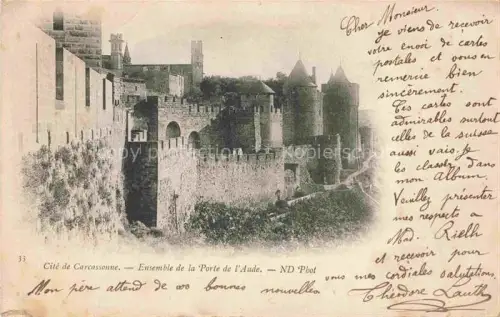 Cher Monsieur.
je viens de recevoir
votre envoi de cartes
postales, et vous en
remercie bien
sincèrement.
Ces cartes sont
admirables surtout
celles de la suisse
aussi vais-je
les classer dans
mon Album.
Veuillez présenter
mes respects à
Mad.
et recevoir pour
vous mes cordiales salutations.
Théodore Lauth
33
Cité de Carcassonne. — Ensemble de la Porte de l'Aude. — ND Phot
Mon père attend de vos bonnes nouvelles